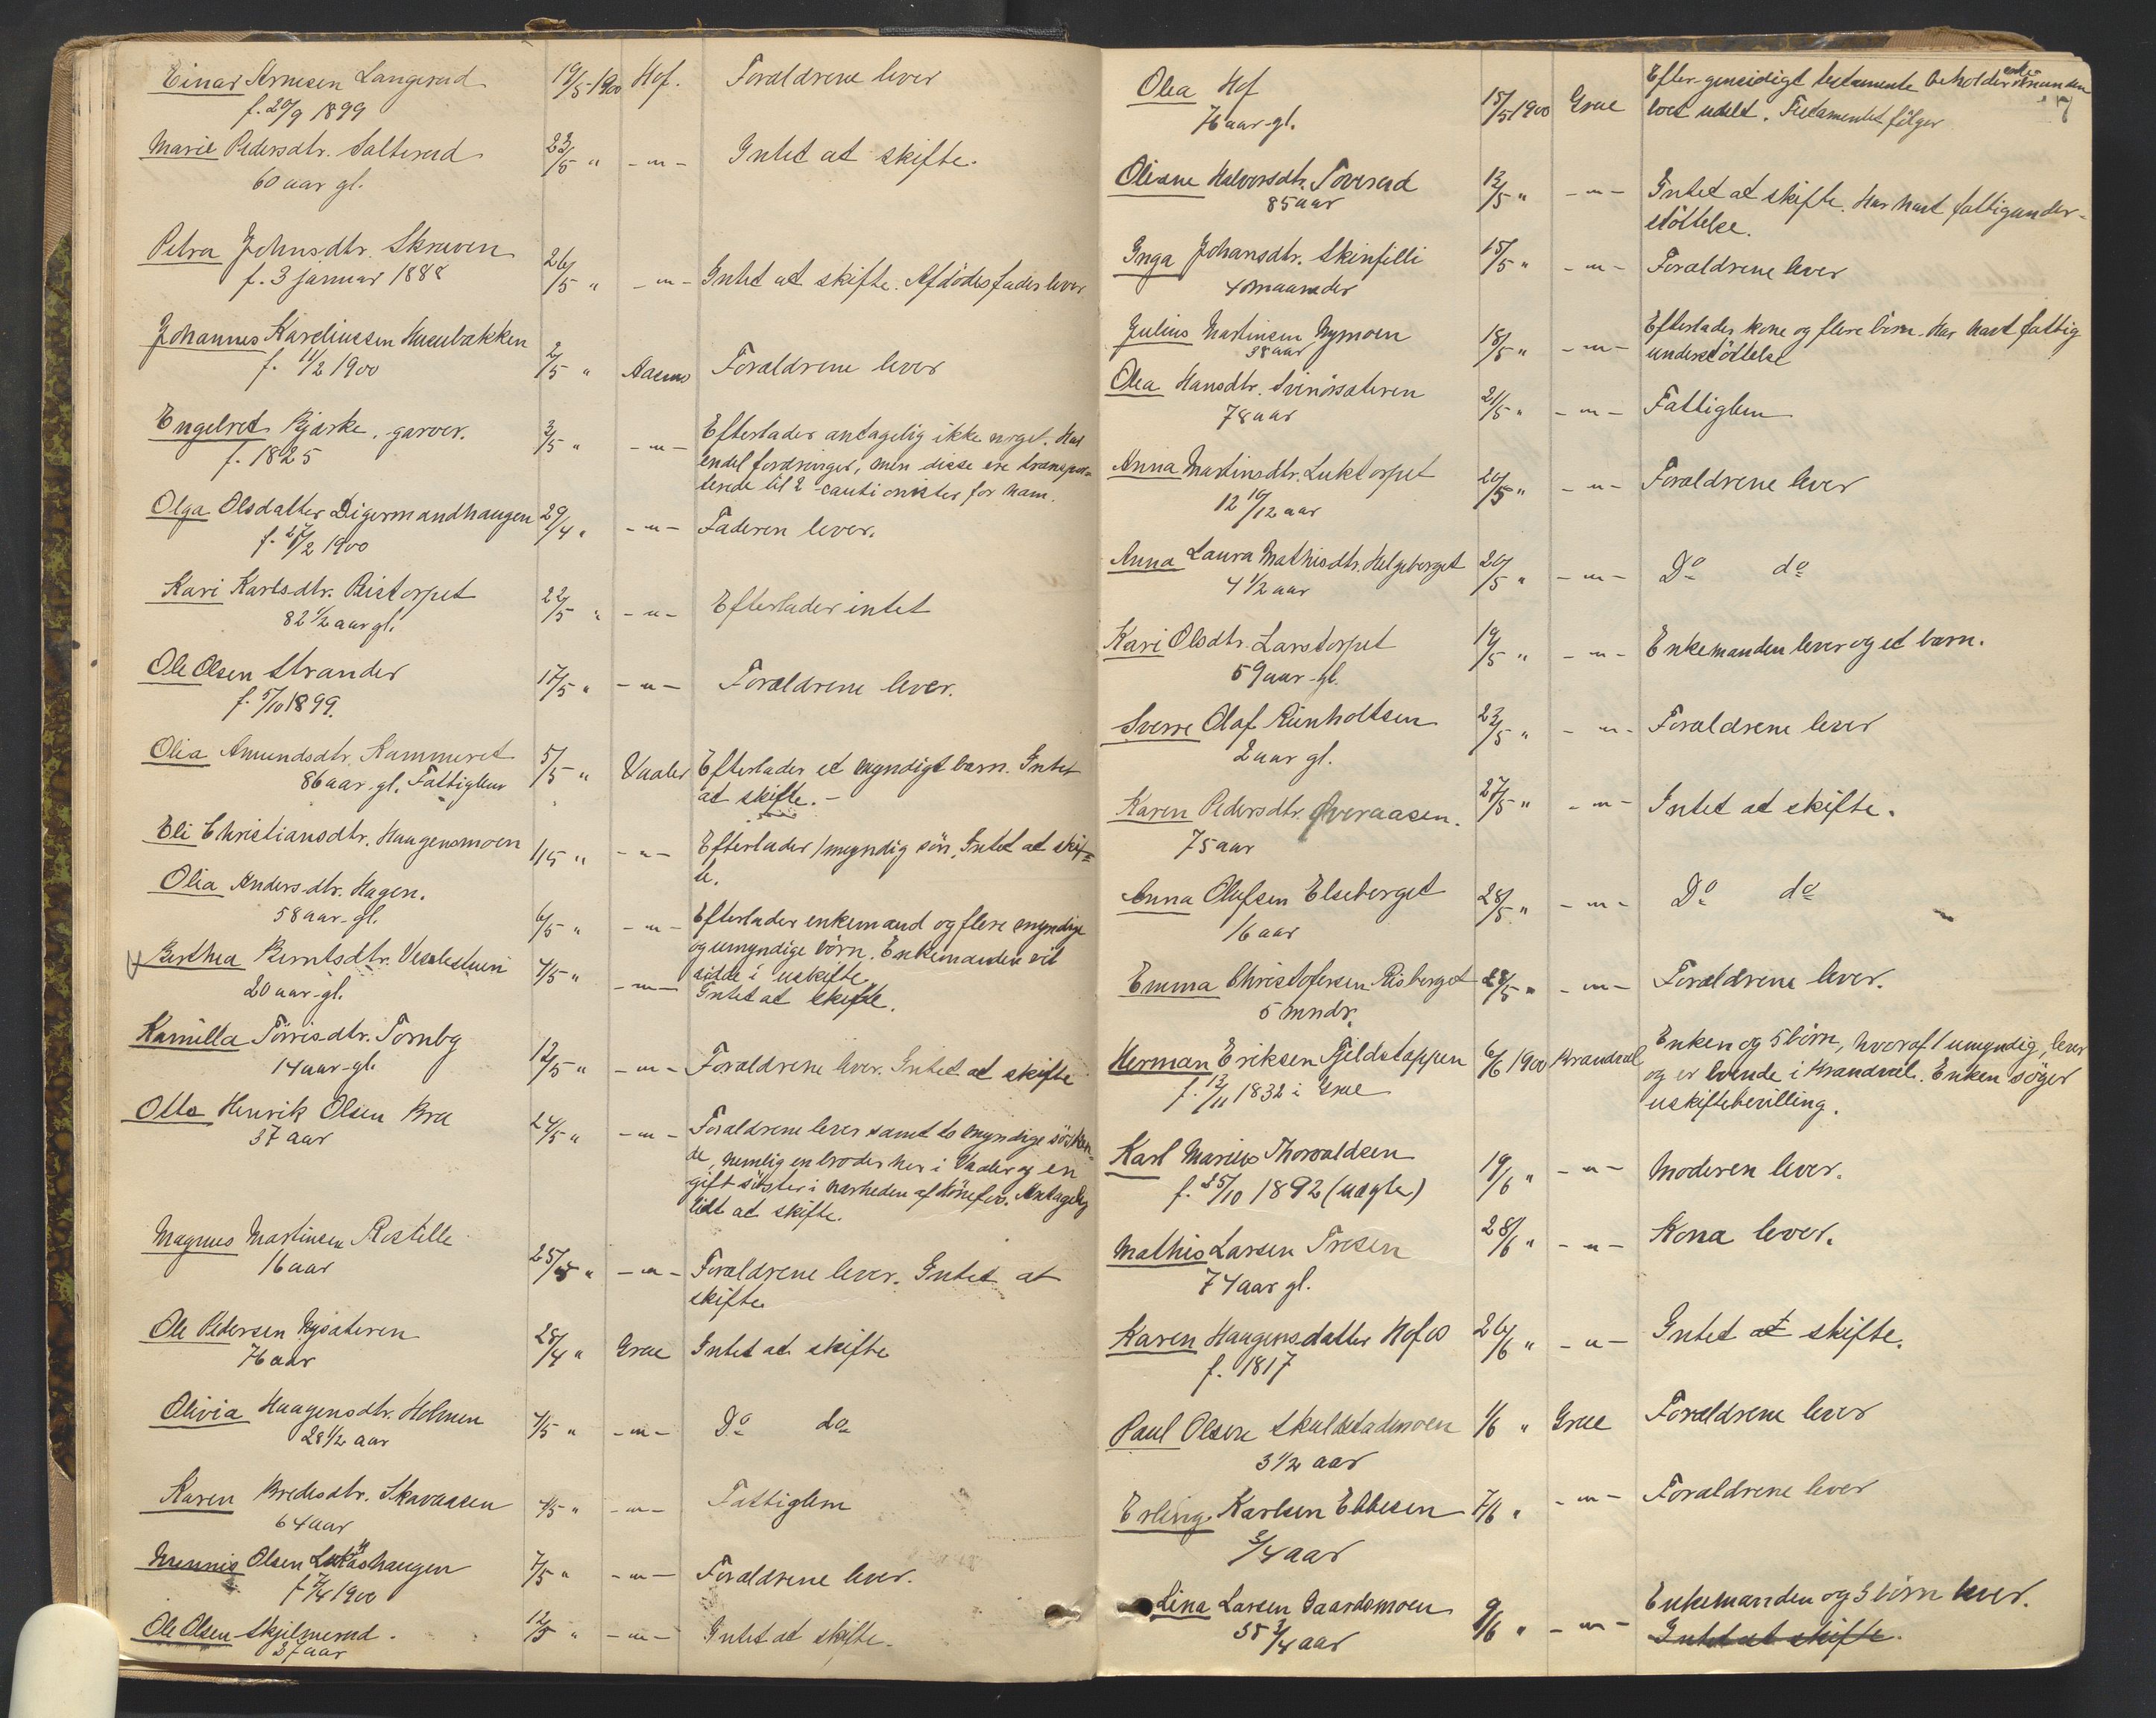 Einar Arnesen Langerud 19/5-1900 Hof. Forældrene lever
f. 20/9 1899
Marie Pedersdtr. Salterud 23/5 " -"- Intet at skifte.
60 aar gl.
Petra Johnsdtr. Skraven 26/5 " -"- Intet at skifte. Afdödes fader lever
f. 3 januar 1888
Johannes Kareliussen Husubakken 2/5 " Aasnes Forældrene lever
f. 11/2 1900
Engelret Bjærke, garver. 3/5 " -"- Efterlader antagelig ikke noget. Har
f. 1825 endel fordringer, men disse ere transpor-
terede til 2 cautionister for ham.
Olga Olsdatter Digermandhaugen 29/4 " -"- Faderen lever.
f. 27/2 1900
Kari Karlsdtr. Reistorpet 22/5 " -"- Efterlader intet
82 1/2 aar gl.
Ole Olsen Strander 17/5 " -"- Forældrene lever.
f. 5/10 1899.
Olia Amundsdtr. Kammeret 5/5 " Vaaler Efterlader et myndigt barn. Intet
86 aar gl. Fattiglem at skifte. -
Eli Christiansdtr. Haugensmoen 1/5 " -"- Efterlader 1 myndig sön. Intet at skif-
te.
Olia Andersdtr. Hagen.
58 aar gl. 6/5 " -"- Efterlader enkemand og flere myndige
og umyndige börn. Enkemanden vil
sidde i uskifte.
Berthea Berntsdtr. Veslestuen 7/5 " -"- Intet at skifte.
20 aar gl.
Kamilla Törrisdtr. Tornby 12/5 " -"- Forældrene lever. Intet at skifte
14 aar gl.
Otto Henrik Olsen Bra 24/5 " -"- Forældrene lever samt to myndige sösken-
37 aar de, nemlig en broder her i Vaaler og en
gift söster i nærheden af Hönefos. Antagelig
lidt at skifte.
Magnus Martinsen Rostille 25/5 " -"- Forældrene lever. Intet at
16 aar skifte
Ole Pedersen Nysæteren 28/4 " Grue Intet at skifte
76 aar
Olivia Haagensdtr. Holmen 4/5 " -"- Do do
28 1/2 aar
Karen Bredesdtr. Skavaasen 4/5 " -"- Fattiglem
64 aar
Mennis Olsen Lukashaugen 7/5 " -"- Forældrene lever.
f 7/4 1900
Ole Olsen Skjelmerud. 12/5 " -"- Intet at skifte.
37 aar
Olea Hof 15/5 1900 Grue Efter gensidigt testamente beholder enkemanden
76 aar gl. boet udelt. Testamentet fölger
Oliane Halvorsdtr. Toverud 12/5 " -"- Intet at skifte. Har havt fattigunder-
85 aar stöttelse.
Inga Johansdtr. Skinfilli 15/5 " -"- Forældrene lever
4 maaneder
Julius Martinsen Nymoen 18/5 " -"- Efterlader kone og flere börn. Har havt fattig
38 aar understöttelse
Olea Hansdtr. Svinösæteren 21/5 " -"- Fattiglem
78 aar
Anna Martinsdtr. Luktorpet 20/5 " -"- Forældrene lever
12 10/12 aar
Anna Laura Mathisdtr. Helgeberget 20/5 " -"- Do do
4 1/2 aar
Kari Olsdtr. Larstorpet 19/5 " -"- Enkemanden lever og et barn.
59 aar gl.
Sverre Olaf Rienholtsen 23/5 " -"- Forældrene lever
2 aar gl.
Karen Pedersdtr. Overaasen. 27/5 " -"- Intet at skifte.
75 aar
Anna Olufsen Elseberget 28/5 " -"- Do do
16 aar
Emma Christofersen Risberget 28/5 " -"- Forældrene lever.
5 mndr.
Herman Eriksen Fjeldstappen 6/6 1900 Brandval Enken og 5 börn, hvoraf 1 umyndig, lever
f. 12/11 1832 i Grue og er boende i Brandval. Enken söger
uskiftebevilling.
Karl Marius Thorvaldsen 19/6 " -"- Moderen lever.
f. 25/10 1892 (uægte)
Mathis Larsen Træsen 28/6 " -"- Kona lever.
74 aar gl.
Karen Haagensdatter Hofos 26/6 " -"- Intet at skifte.
f. 1817
Paul Olsen Skulstadmoen 1/6 " Grue Forældrene lever
3 1/2 aar
Erling Karlsen Ebbesen 7/6 " -"- Forældrene lever
3/4 aar
Lina Larsen Gaardsmoen 9/6 " -"- Enkemanden og 3 börn lever.
35 3/4 aar Intet at skifte.